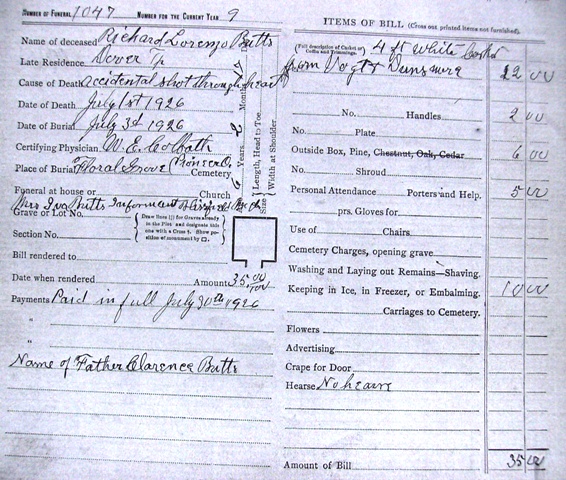 NUMBER OF FUNERAL 1047 NUMBER FOR THE CURRENT YEAR 9
Name of deceased Richard Lorenzo Butts
Late Residence Dover Tp
Cause of Death accidental shot through heart
Date of Death July 1st 1926
Date of Burial July 3d 1926
Certifying Physician W. E.
Place of Burial Floral Grove (Pioneer O. Cemetery
Funeral at house or Church
Mrs Iva Butts Informant
Grave or Lot No.
Section No.
{ Draw lines ||| for Graves already in the Plot and designate this one with a Cross †. Show position of monument by □. }
Bill rendered to
Date when rendered Amount 35.00
Payments Paid in full July 30th 1926
"
"
Name of Father Clarence Butts
Age Years Months
Length, Head to Toe.
Width at Shoulder.
Size
ITEMS OF BILL (Cross out printed items not furnished).
(Full description of Casket or Coffin and Trimmings.) 4 ft White Casket
from Vogt & Dunsmore 12 00
No. Handles 2 00
No. Plate
Outside Box, Pine, Chestnut, Oak, Cedar 6 00
No. Shroud
Personal Attendance Porters and Help. 5 00
prs. Gloves for
Use of Chairs.
Cemetery Charges, opening grave
Washing and Laying out Remains—Shaving.
Keeping in Ice, in Freezer, or Embalming. 10 00
Carriages to Cemetery.
Flowers
Advertising
Crape for Door
Hearse No hearse
Amount of Bill 35 00